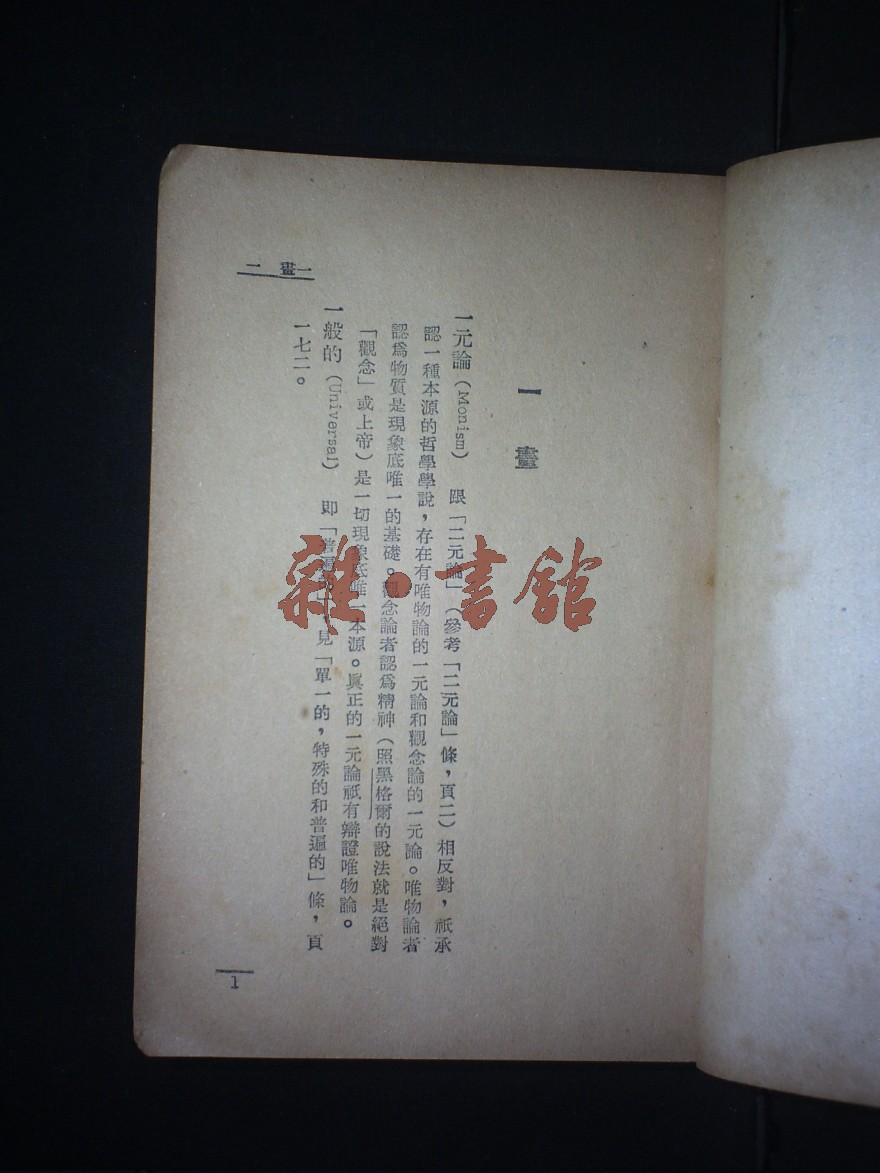 一畫
一元論(Monism) 跟「二元論」(參考「二元論」條,頁二)相反對,祇承
認一種本源的哲學學說,存在有唯物論的一元論和觀念論的一元論。唯物論者
認爲物質是現象底唯一的基礎。觀念論者認爲精神(照黑格爾的說法就是絕對
「觀念」或上帝)是一切現象底唯一本源。眞正的一元論祇有辯證唯物論。
一般的(Universal) 即「普遍的」,見「單一的,特殊的和普遍的」條,頁
一七二。
一畫 一
1
雜·書館